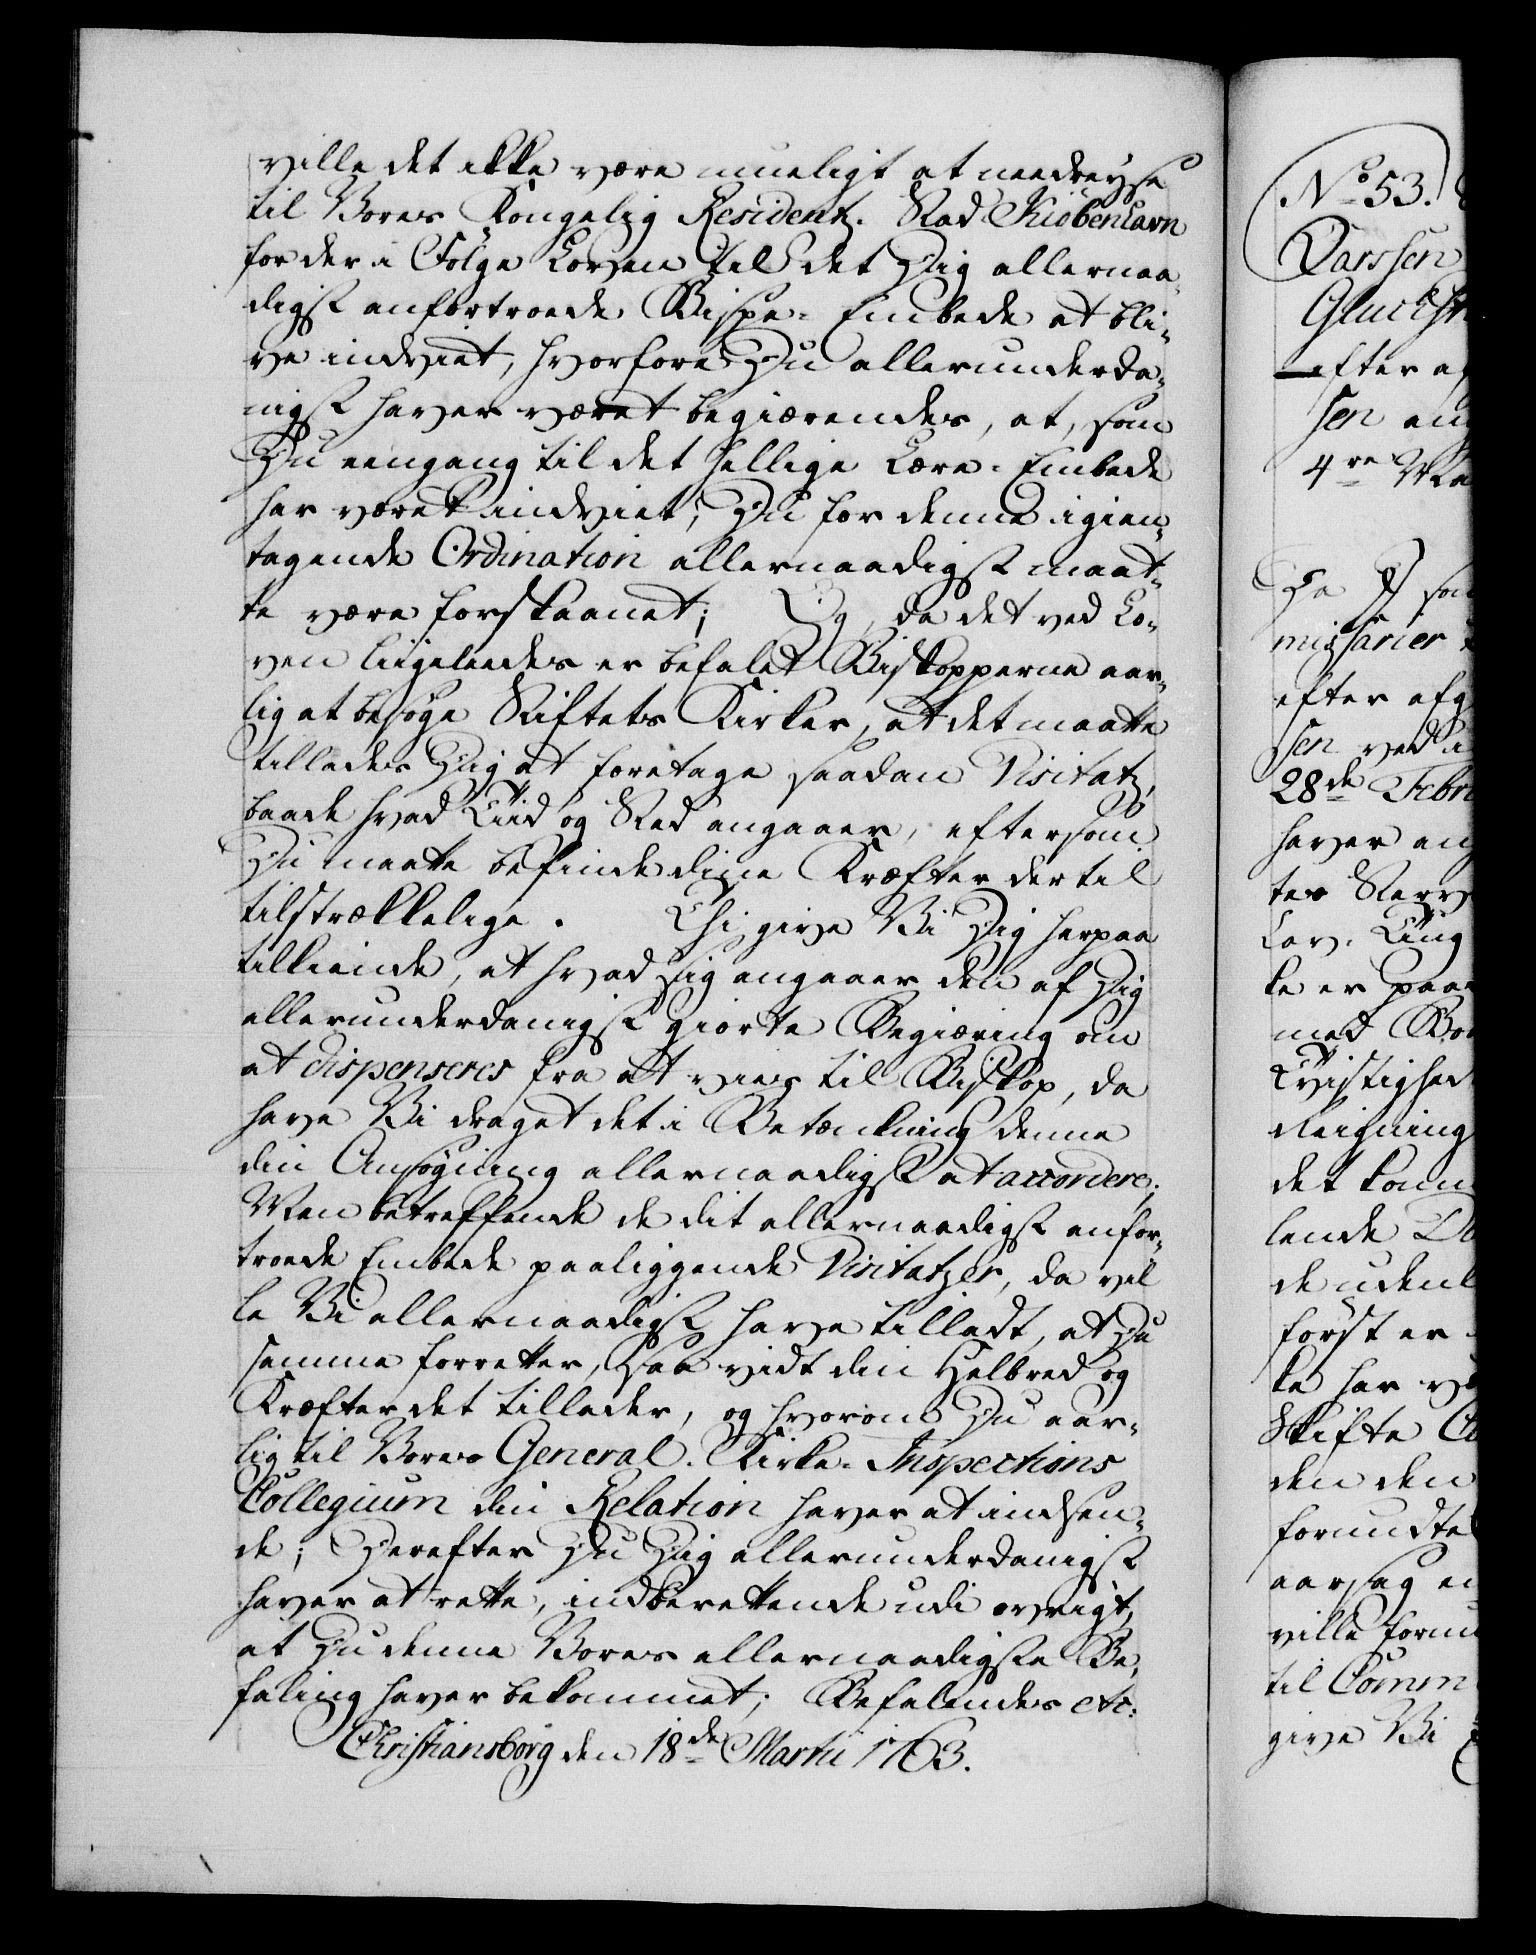 ville det ikke være mueligt at needreyse
til Vores Kongelig Residentz-Stad Kiöbenhavn
for der i Fölge Loven til det Dig allernaa-
digst anfortroede Bispe-Embede at bli-
ve indviet, hvorfore Du allerunderda-
nigst haver været begiærendes, at, som
Du eengang til det hellige Lære-Embede
har været indviet, Du for denne igien-
tagende Ordination allernaadigst maat-
te være forskaanet; Og, da det ved Lo-
ven liigeleedes er befalet Biskopperne aar-
lig at besöge Stiftets Kirker, at det maatte
tillades Dig at foretage saadan Visitatz,
baade hvad Tiid og Sted angaaer, eftersom
Du maatte befinde dine Kræfter dertil
tilstrækkelige. Thi give Vi Dig herpaa
tilkiende, at hvad sig angaaer den af Dig
allerunderdanigst giorte Begiæring om
at dispenseres fra at vies til Biskop, da
have Vi draget det i Betænkning denne
din Ansögning allernaadigst at accordere;
Men betreffende de dit allernaadigst anfor-
troede Embede paaliggende Visitatzer, da vil-
le Vi allernaadigst have tilladt, at Du
samme forretter, saa vidt din Helbred og
Kræfter det tillader, og hvorom Du aar-
lig til Vores General-Kirke-Inspections
Collegium din Relation haver at indsen-
de; Derefter Du Dig allerunderdanigst
haver at rette, indberettende udi övrigt,
at Du denne Vores allernaadigste Be-
faling haver bekommet; Befalendes etc:
Christiansborg den 18de Martii 1763.
No 53.
Larssen
Glücks
efter af
sen an
4re Ma
Da H son
missarier
efter afg
sen ved
28de Febr
haver an
tes Sterv
Lav-Ting
ke er paa
med Bo
Tvistighed
kleigning
det kom
lende
de uden
först er
ke har
Skifte
den den
forundte
aarsag
ville forun
til Comm
give Vi